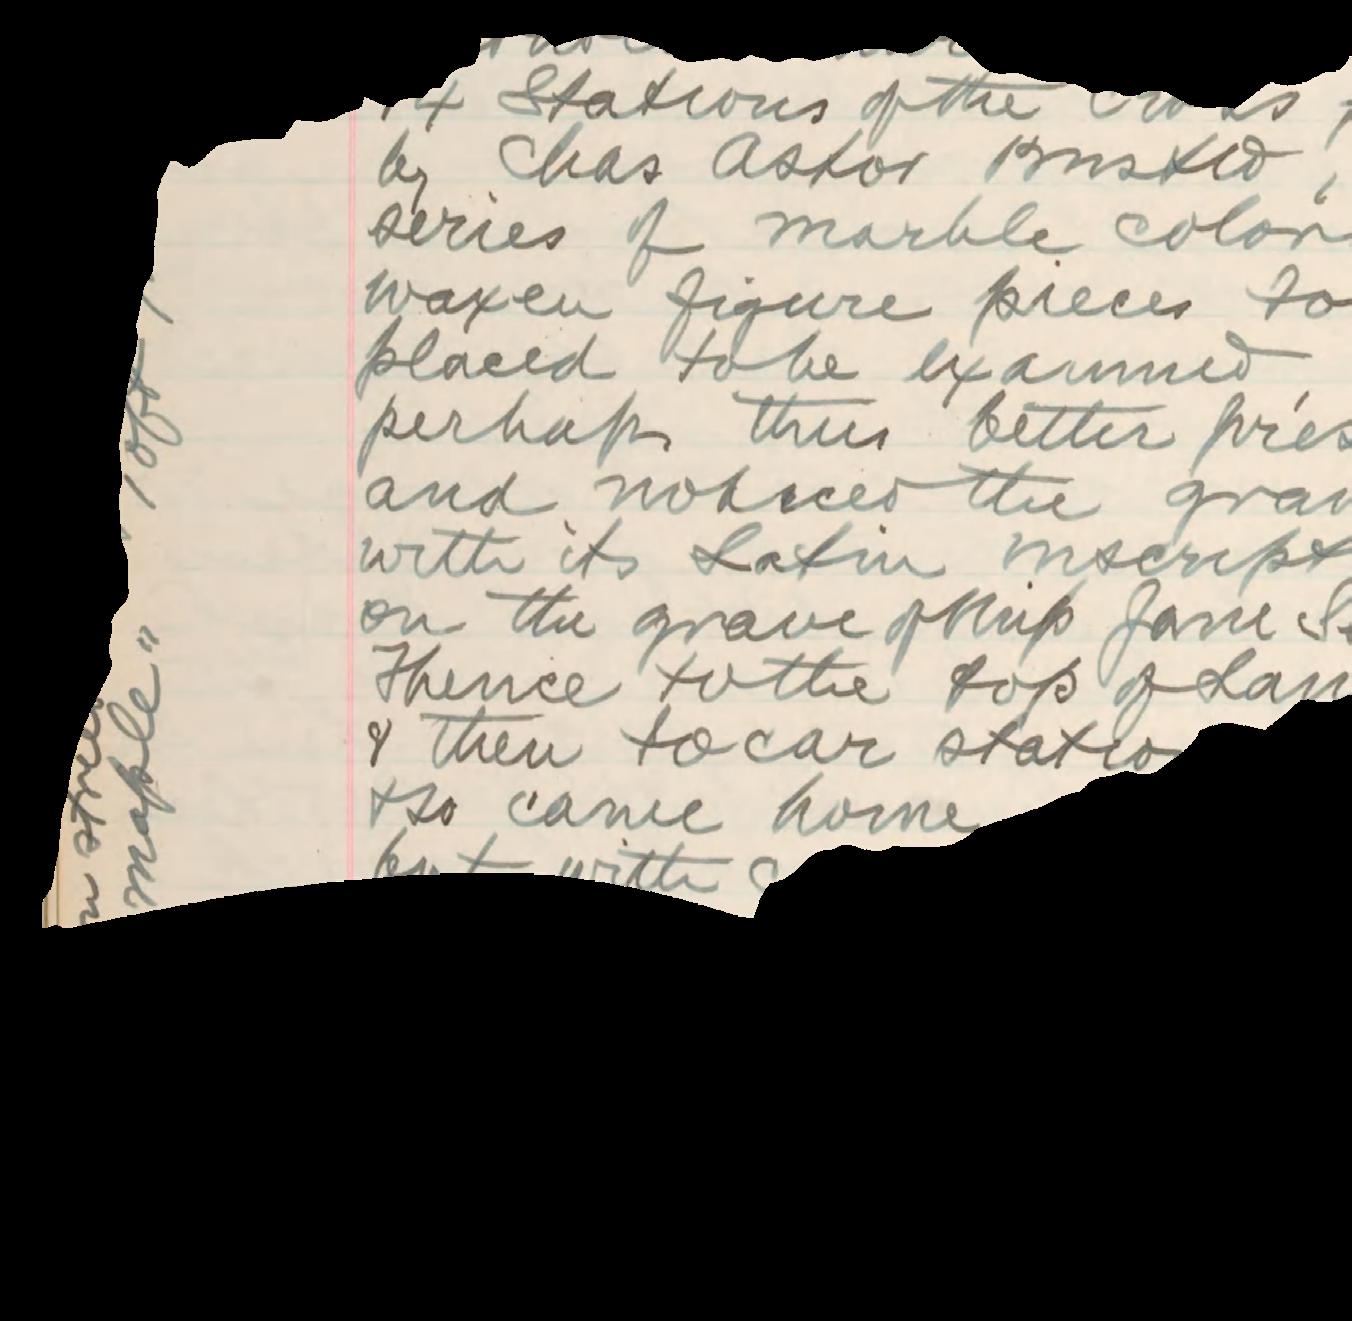 14 Stations of the Cross
by Chas Astor Bristed,
series of marble color
waxen figure pieces to
placed to be examined
perhaps thus better pres
and noticed the grav
with its Latin inscript
on the grave of Jane S
Thence to the top of Lan
& then to car statio
& so came home
but with
maple"